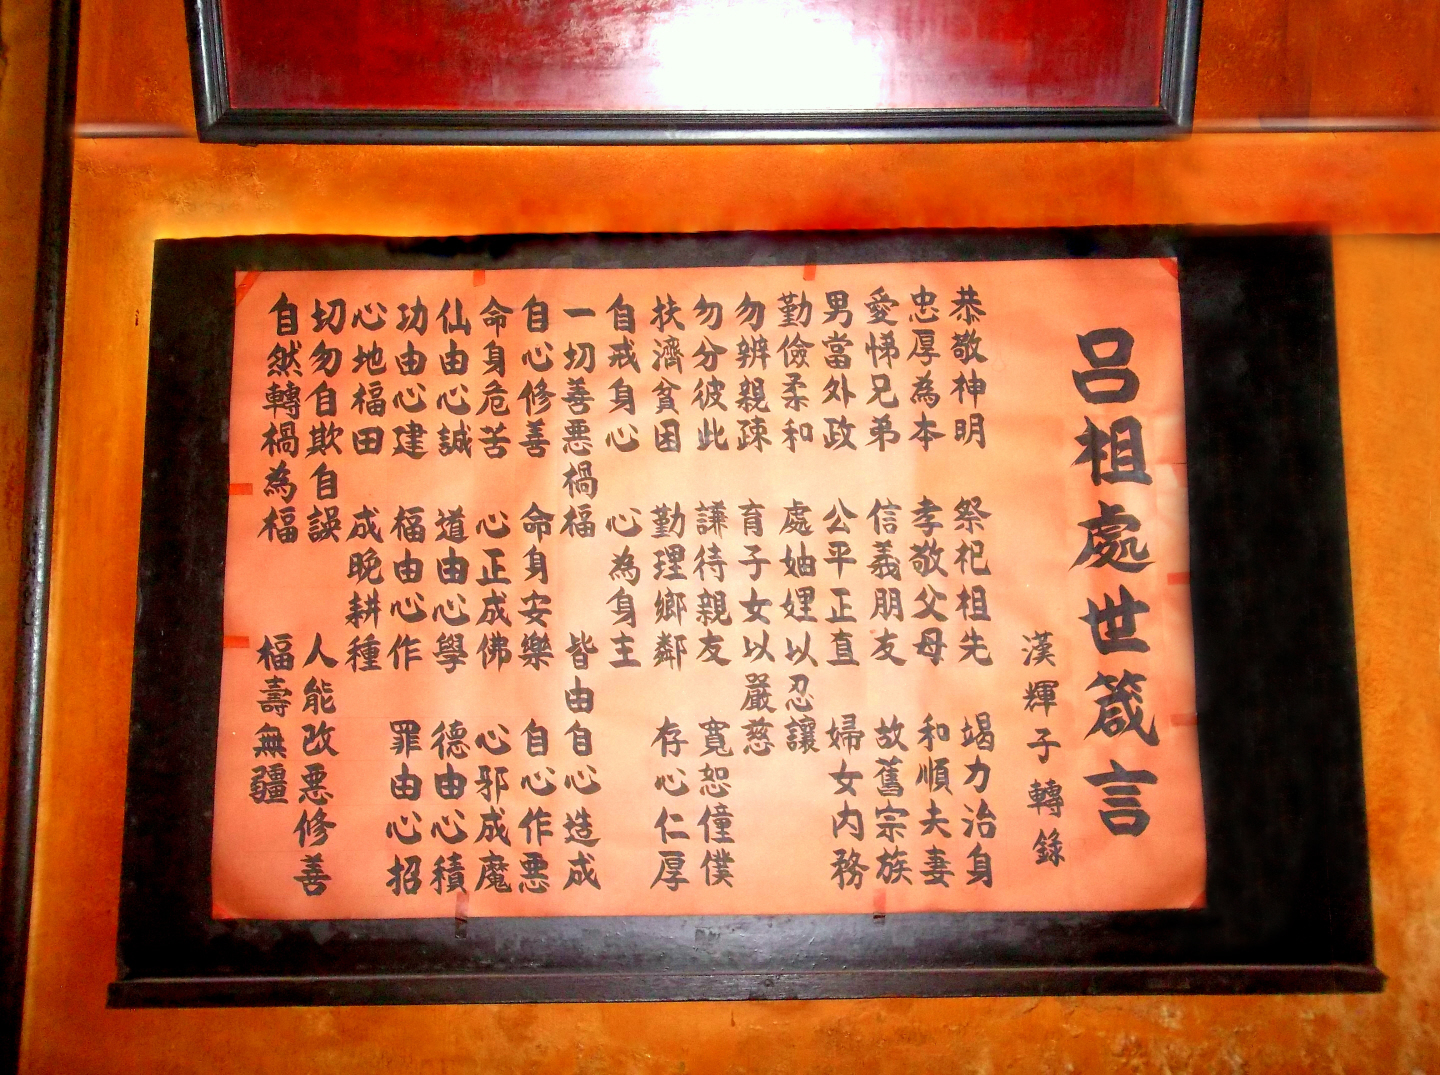 呂祖處世箴言
漢輝子轉錄
恭敬神明 祭祀祖先 竭力治身
忠厚為本 孝敬父母 和順夫妻
愛悌兄弟 信義朋友 故舊宗族
男當外政 公平正直 婦女內務
勤儉柔和 處妯娌以忍讓
勿辨親疎 育子女以嚴慈
勿分彼此 謙待親友 寬恕僮僕
扶濟貧困 勤理鄉鄰 存心仁厚
自戒身心 心為身主
一切善惡禍福 皆由自心造成
自心修善 命身安樂 自心作惡
命身危苦 心正成佛 心邪成魔
仙由心誠 道由心學 德由心積
功由心建 福由心作 罪由心招
心地福田 成晚耕種
切勿自欺自誤 人能改惡修善
自然轉禍為福 福壽無疆